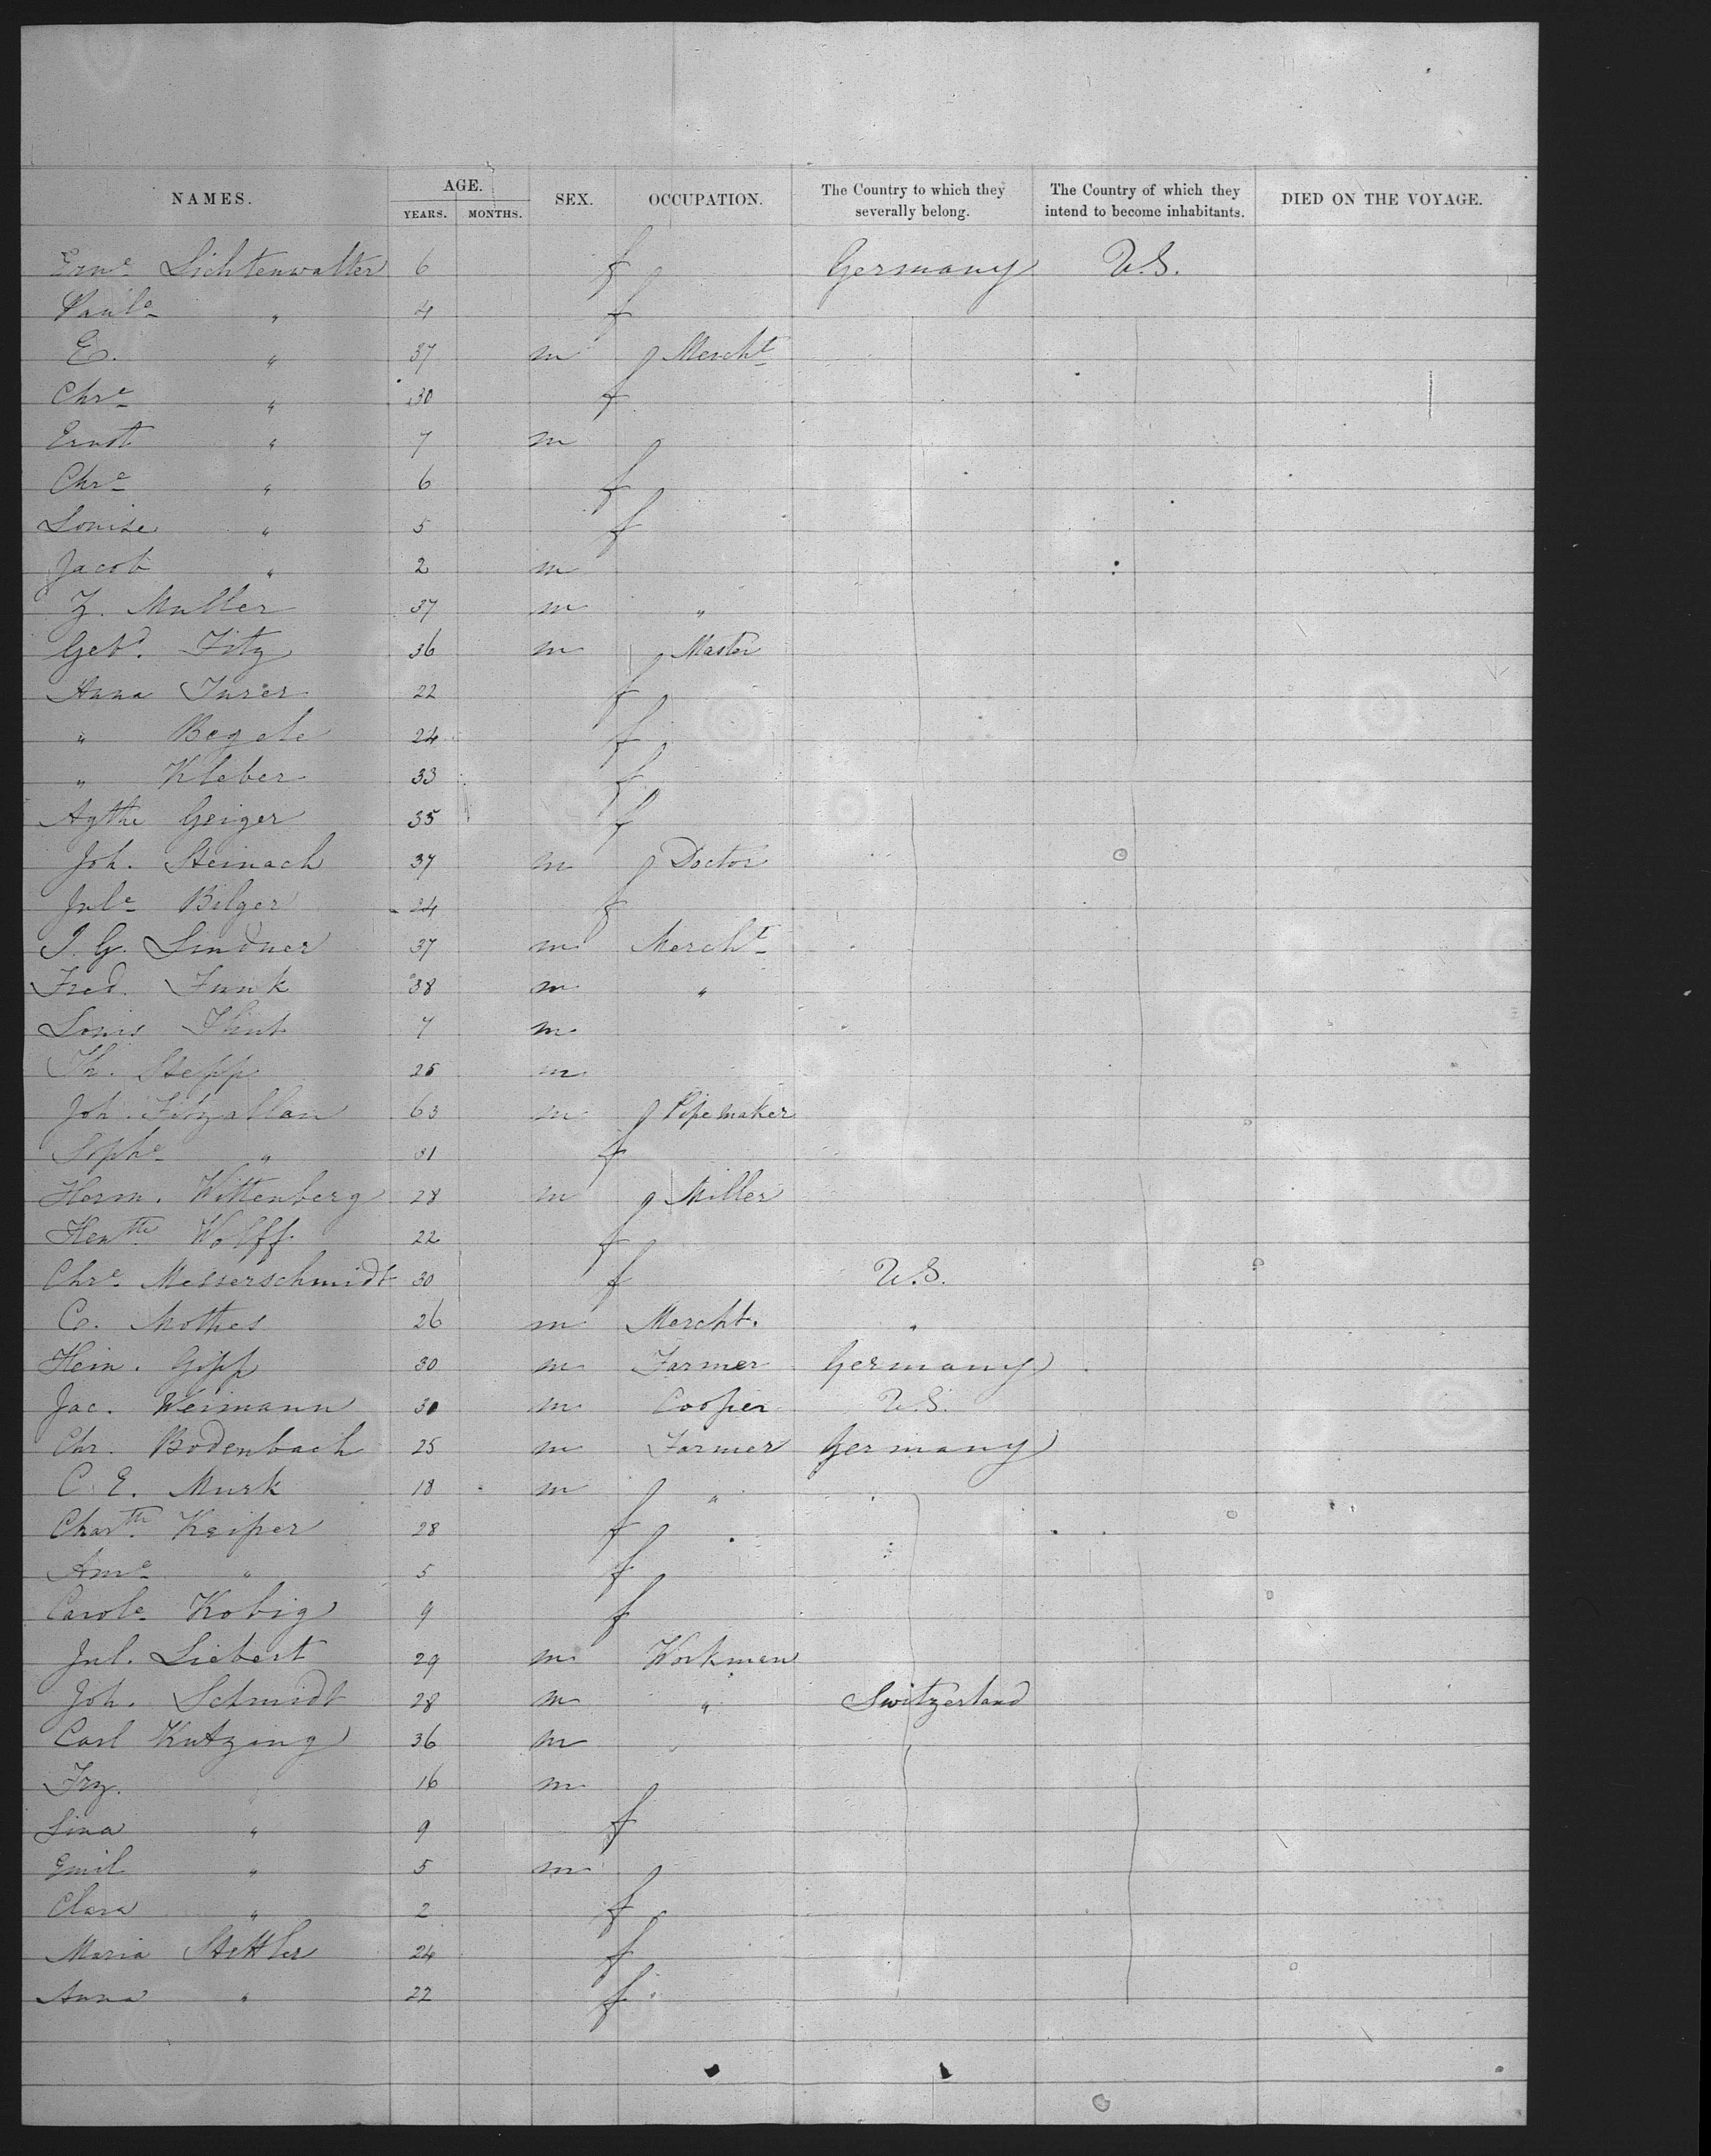 NAMES. AGE. YEARS. MONTHS. SEX. OCCUPATION. The Country to which they severally belong. The Country of which they intend to become inhabitants. DIED ON THE VOYAGE.
Erne Lichtenwalter 6 f Germany U.S.
Paule " 4 f
E. " 37 m Mercht
Chre " 30 f
Ernst " 7 m
Chre " 6 f
Louise " 5 f
Jacob " 2 m
Z. Muller 37 m "
Gebd. Fitz 36 m Master
Anna Jurer 22 f
" Begele 24 f
" Kleber 33 f
Agthe Geiger 35 f
Joh. Steinach 37 m Doctor
Jule Bilger 24 f
J. G. Lindner 37 m Mercht
Fred. Funk 38 m "
Louis 7 m
Th. Stepp 25 m
Joh. Fitzallan 63 m Pipemaker
Sophe " 31 f
Herm. Wittenberg 28 m Miller
Henthe Wolff 22 f
Chre Messerschmidt 30 f U.S.
C. Mothes 26 m Mercht. "
Hein. Gipp 30 m Farmer Germany
Jac. Weimann 30 m Cooper U.S.
Chr. Bodenbach 25 m Farmer Germany
C. E. Murk 18 m "
Charthe Keiper 28 f
Ame " 5 f
Carole Kobig 9 f
Jul. Liebert 29 m Workman
Joh. Schmidt 28 m " Switzerland
Carl Kutzing 36 m "
Frz. " 16 m
Lina " 9 f
Emil " 5 m
Clara " 2 f
Maria Stettler 24 f
Anna " 22 f